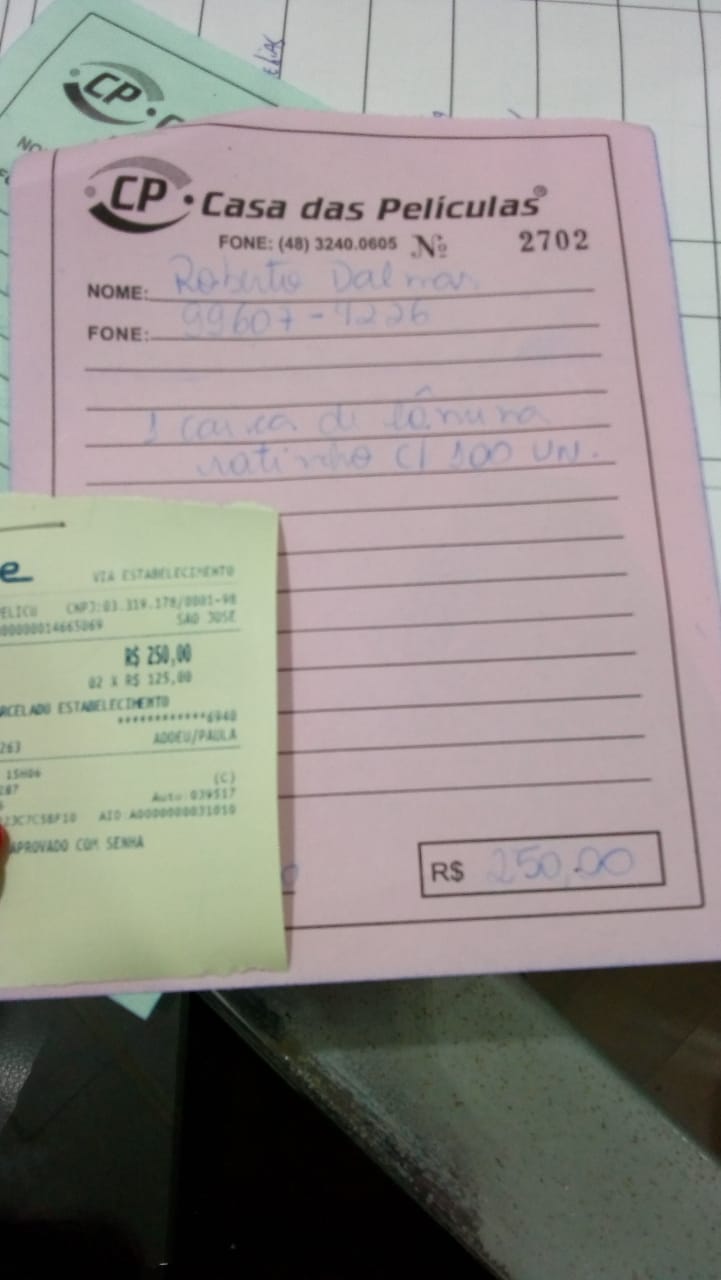 CP
CP • Casa das Películas®
FONE: (48) 3240.0605 Nº 2702
NOME: Roberto Dalmas
FONE: 99607-4226
1 caixa de lâmina
ratinho c/ 100 UN.
e VIA ESTABELECIMENTO
ELICU CNPJ:03.319.178/0001-98
00000014665069 SAO JOSE
R$ 250,00
02 X R$ 125,00
RCELADO ESTABELECIMENTO
************6940
263 ADOEU/PAULA
15H06 (C)
287 Auto:039517
23C7C5BF10 AID:A0000000031010
APROVADO COM SENHA
R$ 250,00